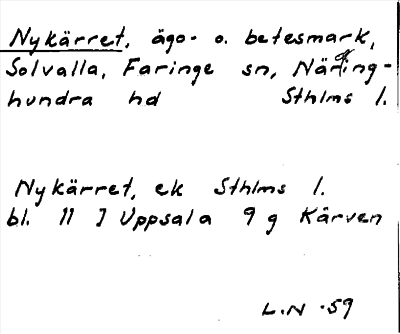 Nykärret, ägo- o. betesmark,
Solvalla, Faringe sn, Närding-
hundra hd Sthlms l.
Nykärret, ek Sthlms l.
bl. 11 I Uppsala 9 g Kärven
L.N -59